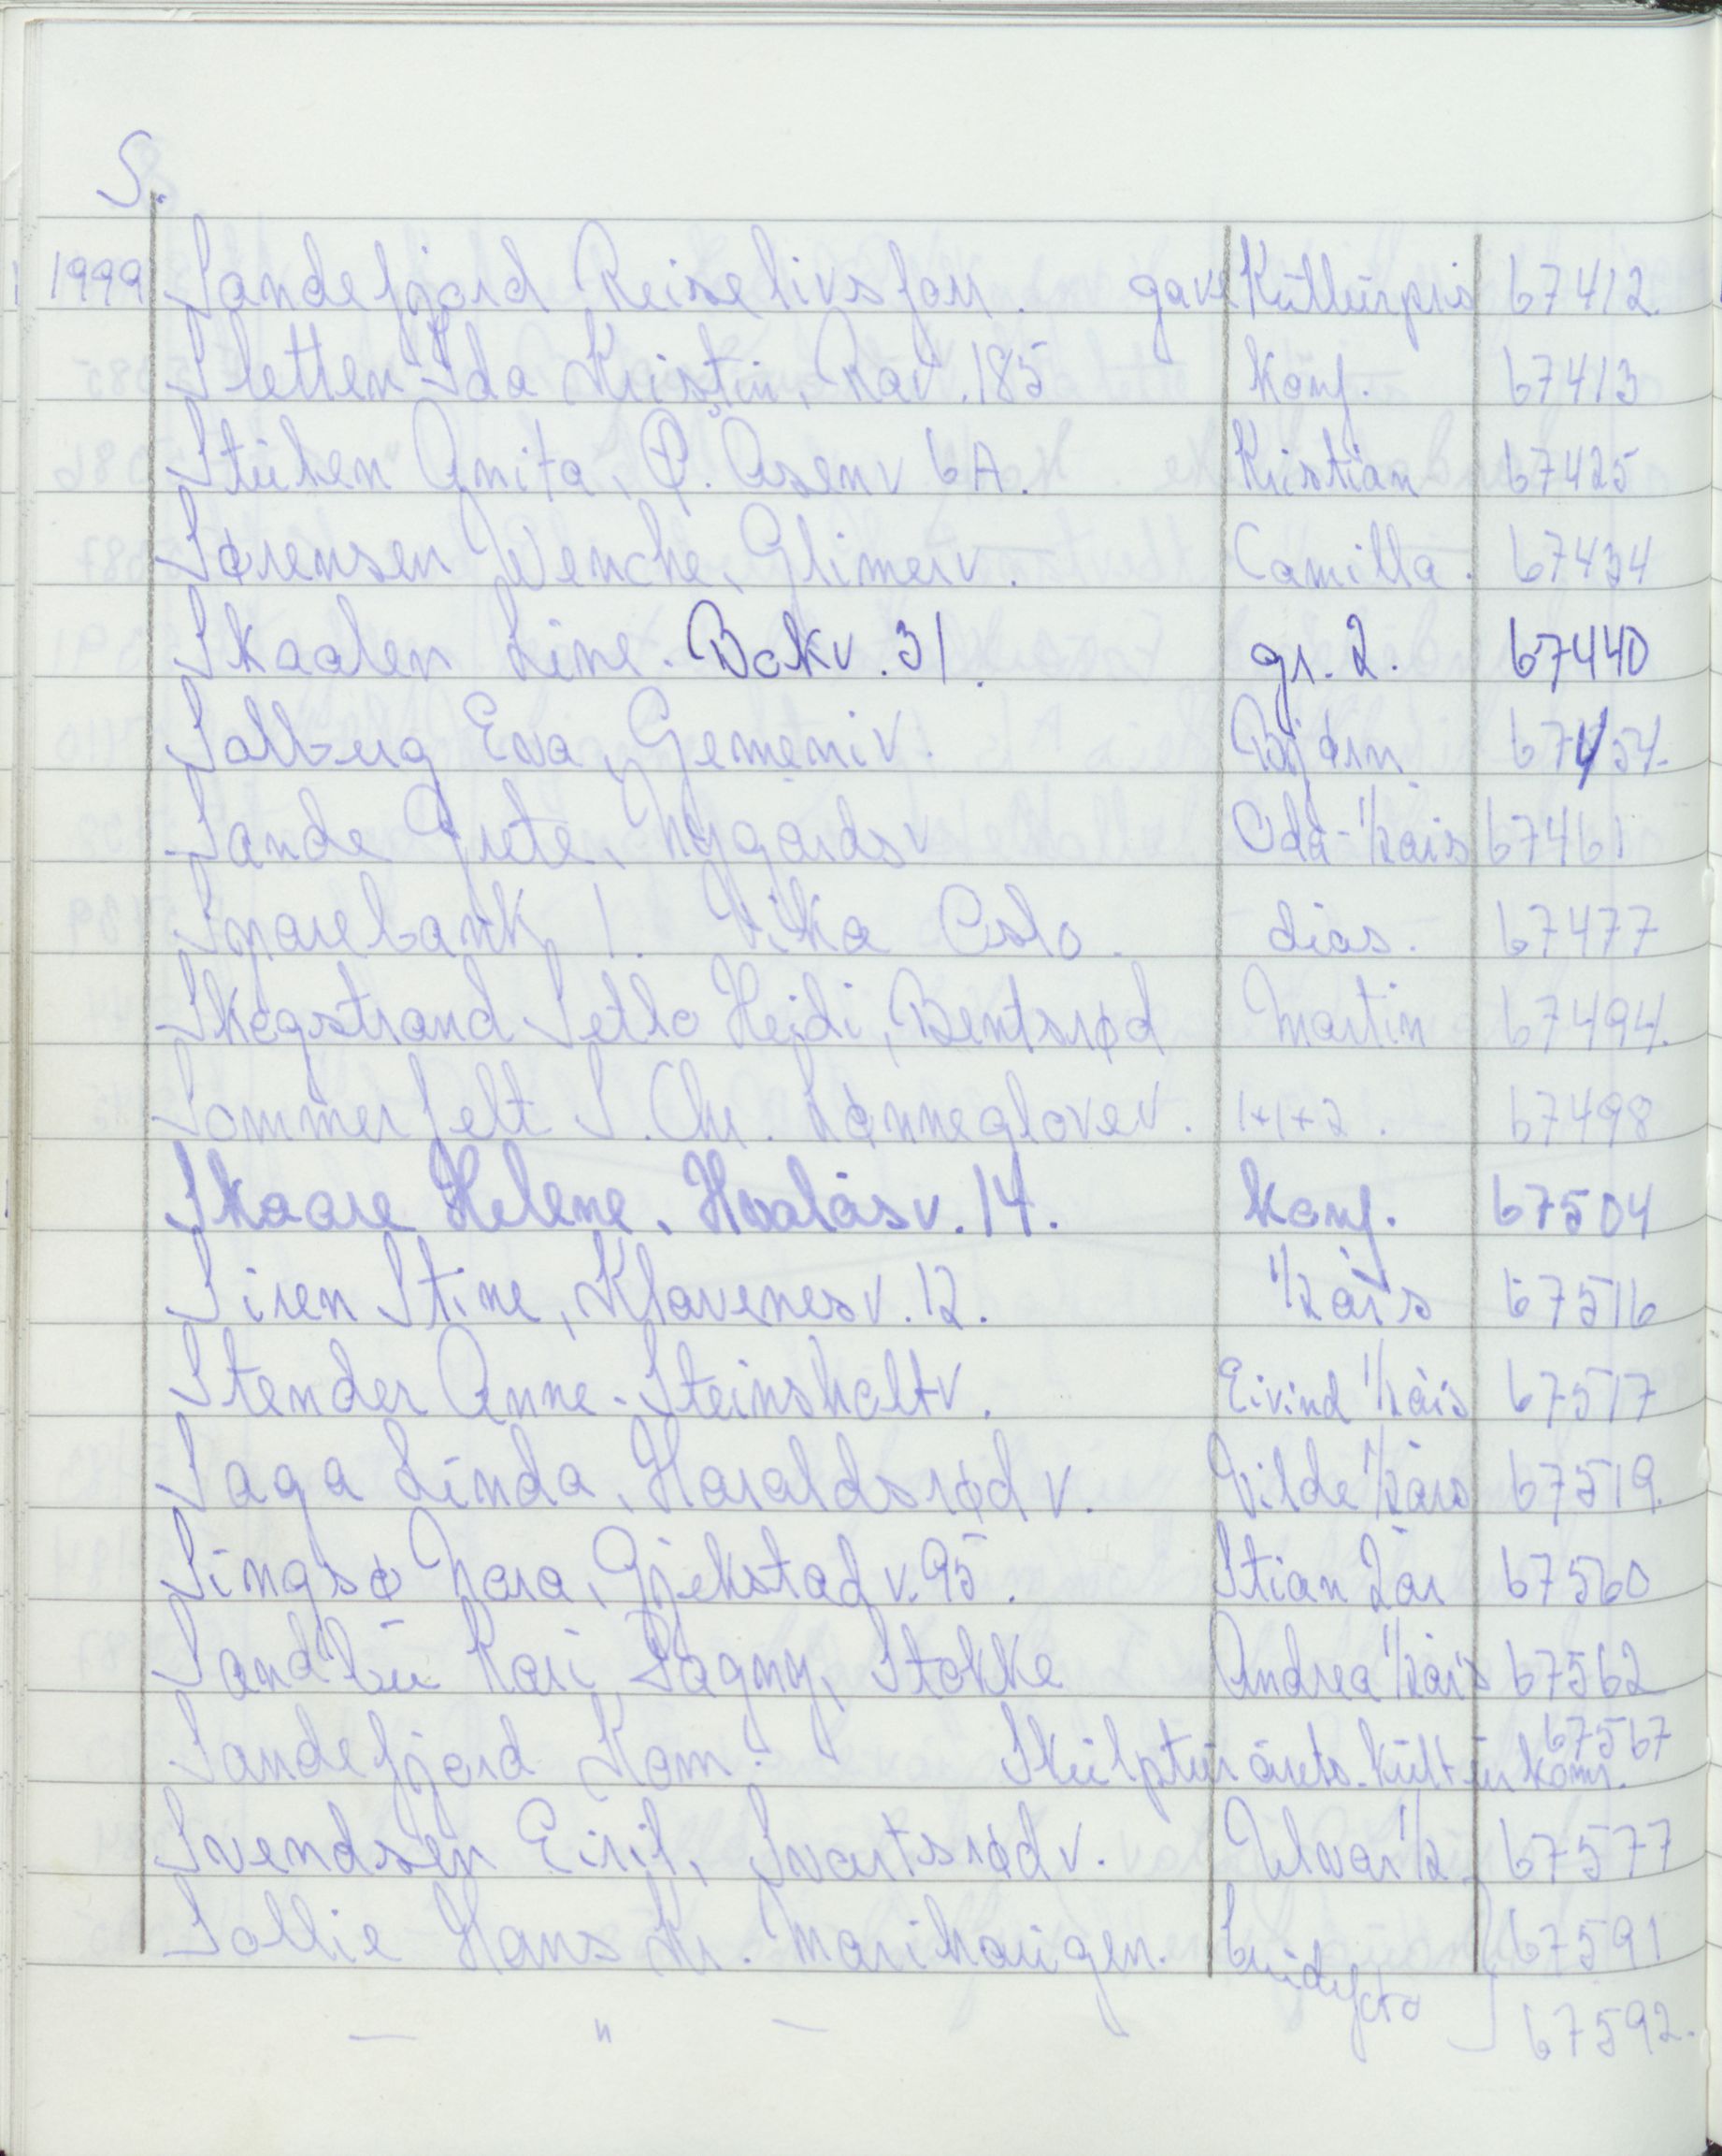 S.
1999 Sandefjord Reiselivsforr. gave Kulturpris 67412.
Sletten Ida Kristin, Rav. 185 Konf. 67413
Stühen Anita, P. Åsenv 6A. Kristian 67425
Sørensen Wenche, Glimerv. Camilla. 67434
Skaalen Line. Bokv. 31. gr. 2. 67440
Solberg Eva, Gemeniv. Bjørn 67454.
Sande Grete, Nygårdsv Odd-1/2 års 67461
Sparebank 1. Vika Oslo. dias. 67477
Skogstrand Setlo Heidi, Bentsrød Martin 67494.
Sommerfelt S. Chr. Lønneglovev. 1+1+2. 67498
Skaare Helene. Hvalåsv. 14. Konf. 67504
Siren Stine, Klavenesv. 12. 1/2 års 67516
Stender Anne. Steinsholtv. Eivind 1/2 års 67517
Saga Linda, Haraldsrødv. Vilde 1/2 års 67519.
Singsø Nora, Gjekstadv. 95. Stian 2 år 67560
Sandbu Kari Dagny, Stokke Andrea 1/2 års 67562
Sandefjord Kom. Skulptur årets kulturkomm. 67567
Svendsen Eiril, Svartsrødv. 1/2 67577
Sollie Hans Kr. Marihaugen. brudefoto 67591
— " — 67592.